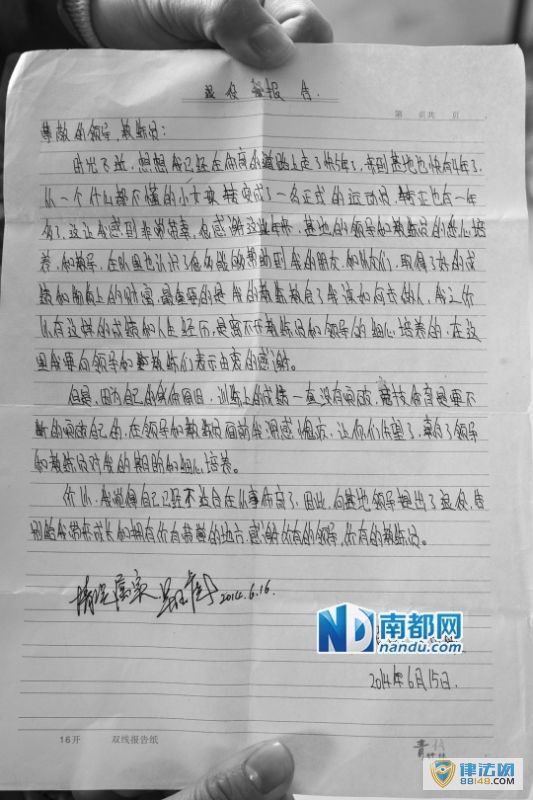 退役报告.
第 页共 页
尊敬的领导,教练员:
时光不站,想想我已经在体育的道路上走了快5年了,来到基地也快有4年了,
从一个什么都不懂的小女孩转变成了一名正式的运动员,转正也有一年
多了,这让我感到非常荣幸,很感谢这些年来,基地的领导和教练员的悉心培
养,和教导,在队里也认识了很多能够帮助到我的朋友,和队友们,取得了好的成
绩和物质上的财富,最重要的是我的教练教会了我该如何去做人,我之所
以有这样的成绩和人生经历,是离不开教练员和领导的细心培养的,在这
里我要向领导和教练们表示由衷的感谢。
但是,因为自己的身体原因,训练上的成绩一直没有突破,竞技体育是要不
断的突破自己的,在领导和教练员面前我深感惭愧,让你们失望了,辜负了领导
和教练员对我的期盼和细心培养。
所以,我觉得自己已经不适合在从事体育了,因此,向基地领导提出了退役,告
别给我带来成长和拥有所有荣誉的地方,感谢所有的领导,所有的教练员。
情况属实. 2014.6.16
ND 南都网
nandu.com
2014年6月15日.
16开 双线报告纸
青
律法网
88148.com